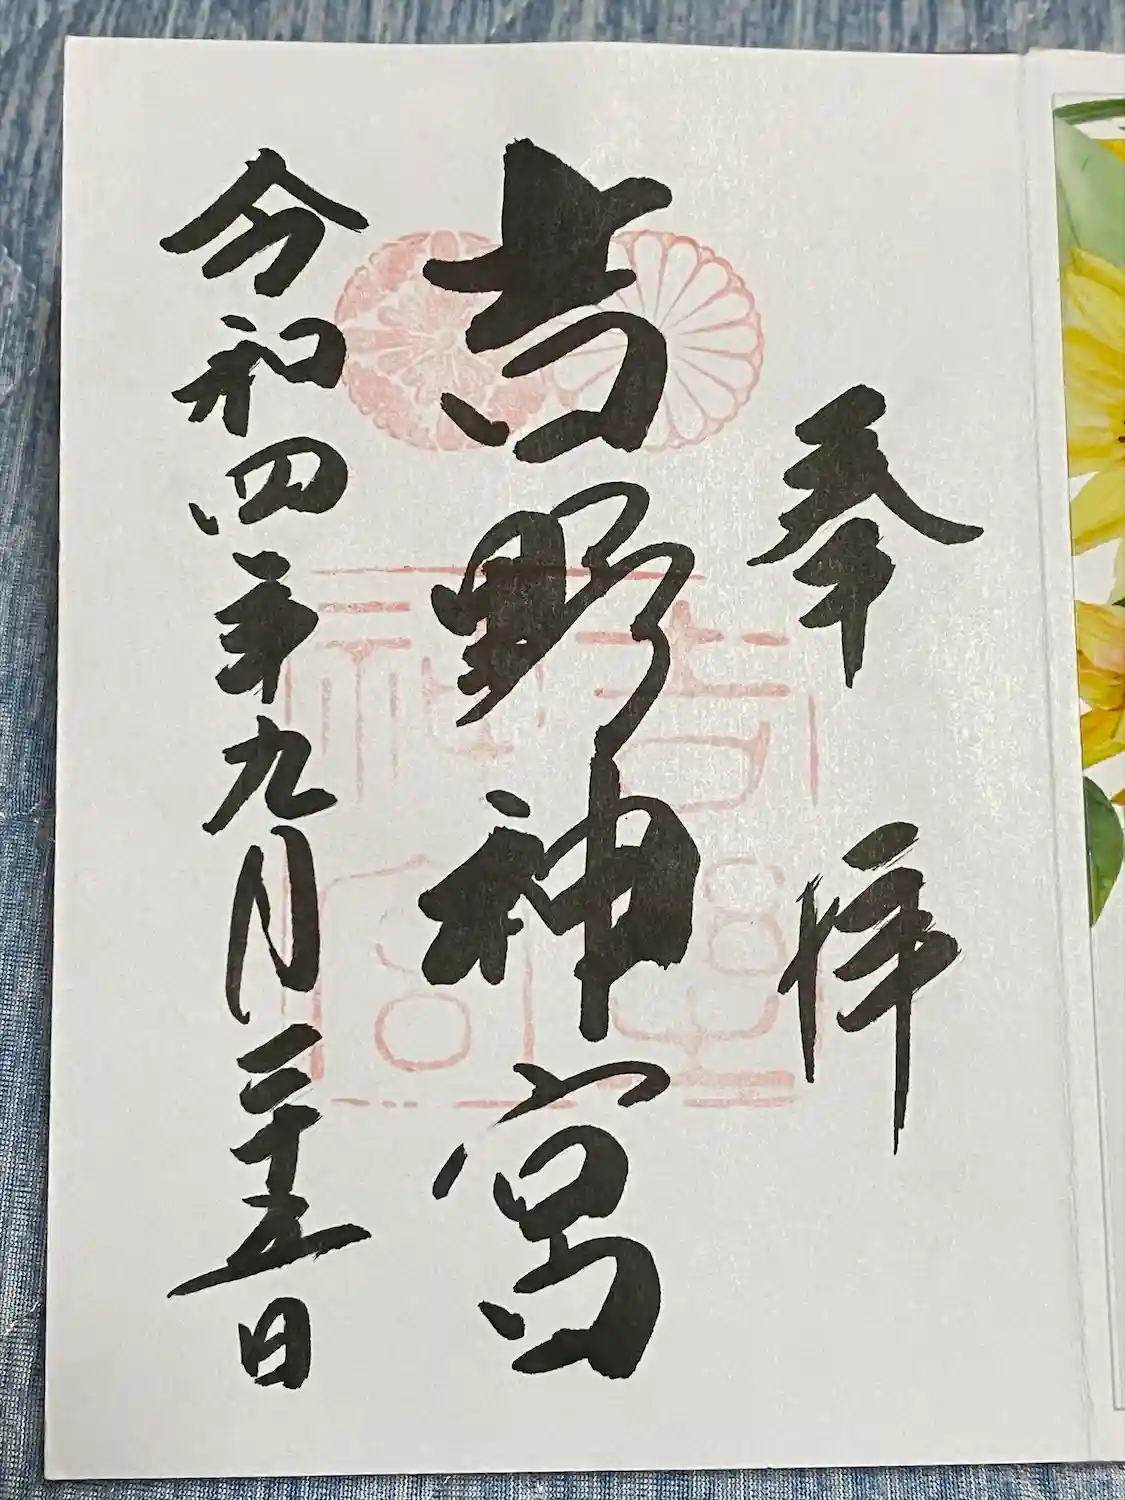 奉拝
吉野神宮
令和四年九月二十五日
吉野
神宮